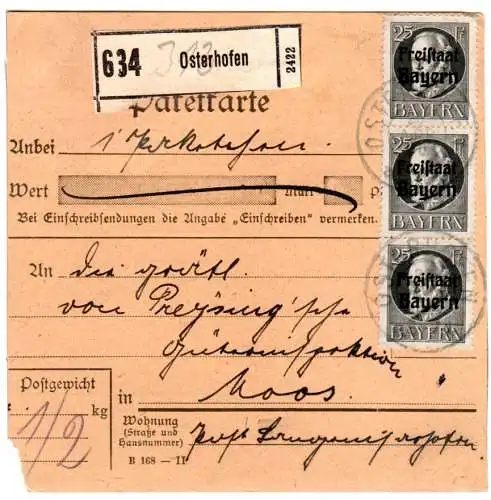 634 Osterhofen 2422
313
Paketkarte
25 Pf
Freistaat
Bayern
BAYERN
25 Pf
Freistaat
Bayern
BAYERN
25 Pf
Freistaat
Bayern
BAYERN
Anbei 1
Wert Mark P
Bei Einschreibsendungen die Angabe „Einschreiben" vermerken.
An die gräfl.
von Preysing'sche
Güterinspektion
Postgewicht
1/2 kg
in Moos
Wohnung
(Straße und
Hausnummer)
Post Langenisarhofen
B 168 — II